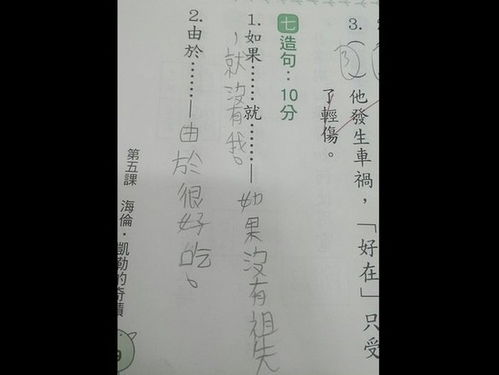 3.(3)他發生車禍，「好在」只受
了輕傷。
七 造句：10分
1.如果……就……—如果沒有祖先
，就沒有我。
2.由於……—由於很好吃。
第五課 海倫·凱勒的奇蹟